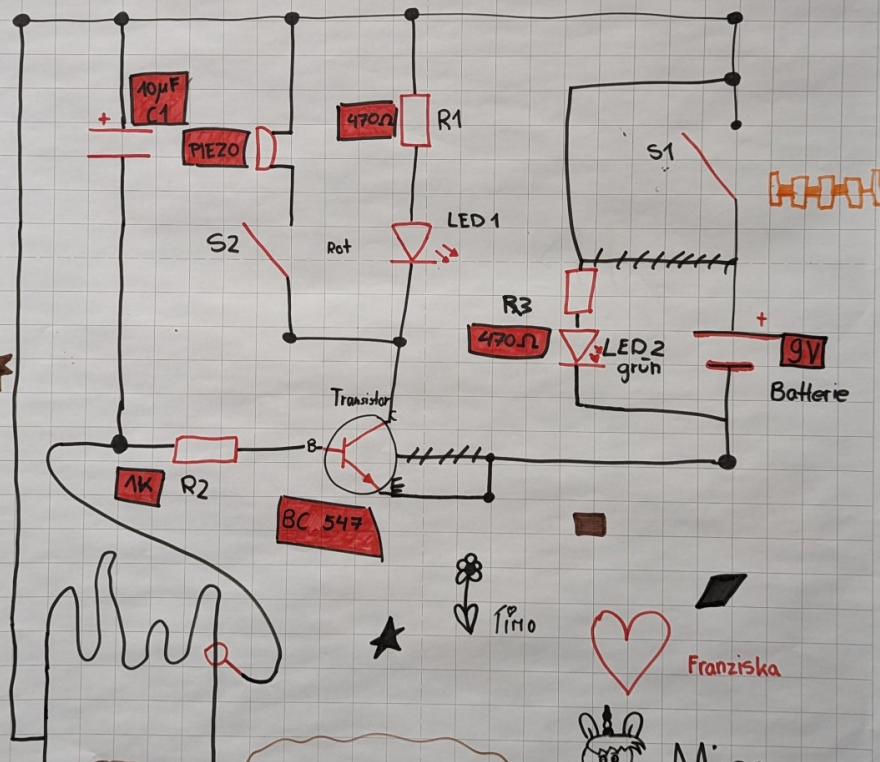 10µF
C1
+
PIEZO
470Ω
R1
S1
S2
Rot
LED 1
R3
470Ω
LED 2
grün
+
9V
Batterie
Transistor
C
B
E
1K
R2
BC 547
Timo
Franziska